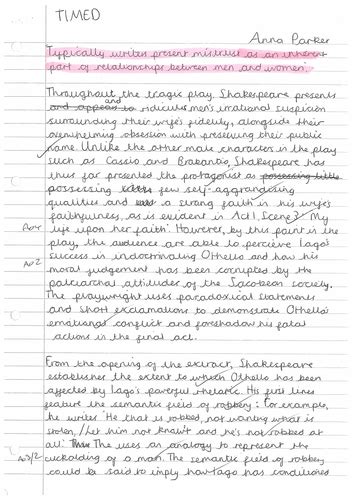 TIMED
Anna Parker
Typically writers present mistrust as an inherent
part of relationships between men and women.
Throughout the tragic play, Shakespeare presents
and appears to and ridicules men's irrational suspicion
surrounding their wife's fidelity, alongside their
overwhelming obsession with preserving their public
name. Unlike the other male characters in the play
such as Cassio and Brabantio, Shakespeare has
thus far presented the protagonist as possessing little
possessing few self-aggrandising
qualities and a strong faith in his wife's
faithfulness, as is evident in Act 1, Scene 3 'My
life upon her faith'. However, by this point in the
play, the audience are able to perceive Iago's
success in indoctrinating Othello and how his
moral judgement has been corrupted by the
patriarchal attitudes of the Jacobean society.
The playwright uses paradoxical statements
and short exclamations to demonstrate Othello's
emotional conflict and forshadow his fatal
actions in the final act.
From the opening of the extract, Shakespeare
establishes the extent to which Othello has been
affected by Iago's powerful rhetoric. His first lines
feature the semantic field of robbery: For example,
he writes 'He that is robbed, not wanting what is
stolen, // Let him not know't and he's not robbed at
all'. The uses an analogy to represent the
AO3/2
cuckolding of a man. The semantic field of robbery
could be said to imply how Iago has conditioned